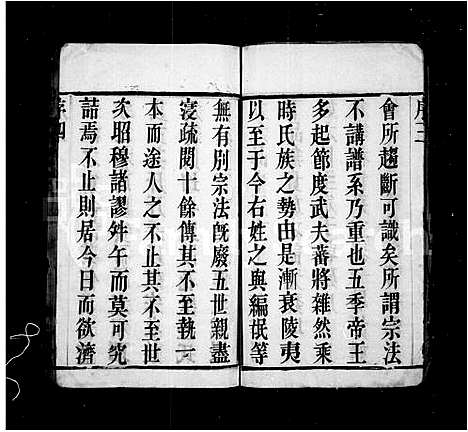 序三
會所趨斷可識矣所謂宗法
不講譜系乃重也五季帝王
多起節度武夫蕃將雜然乘
時氏族之勢由是漸衰陵夷
以至于今右姓之與編氓等
無有別宗法既廢五世親盡
寖疏閱十餘傳其不至執一
本而途人之不止其不至世
次昭穆諸謬舛午而莫可究
詰焉不止則居今日而欲濟
序四